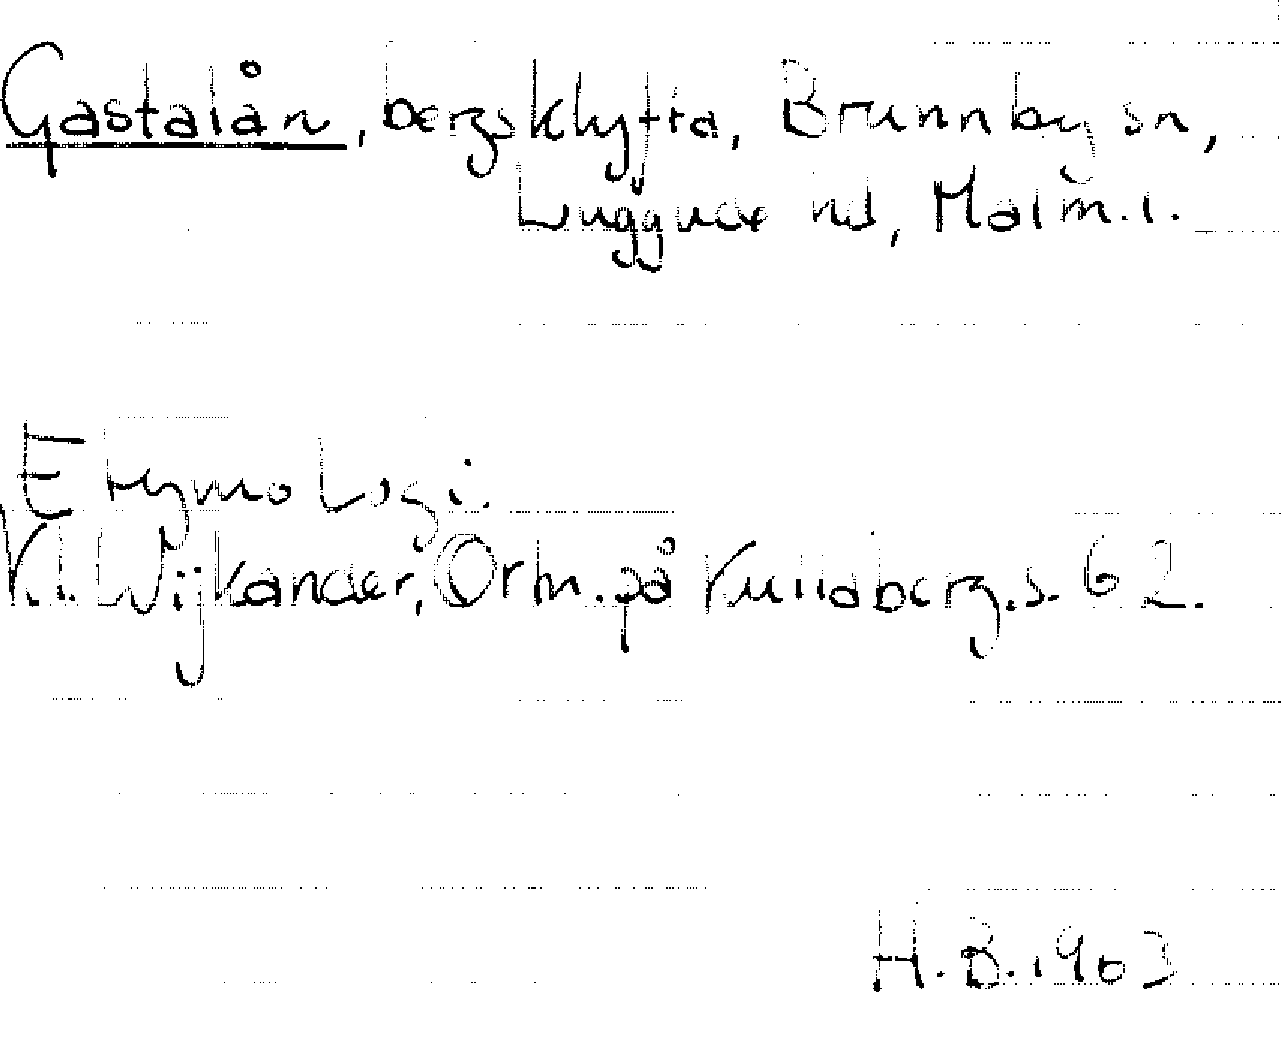 Gastalån, bergsklyfta, Brunnby sn,
Luggude hd, Malm.l.
Etymologi.
Kl. Wijkander, Ortn. på Kullaberg. s. 62.
H.B. 1963